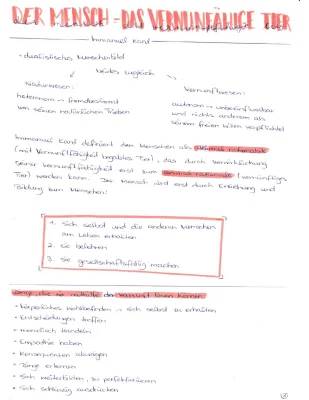 DER MENSCH - DAS VERNUNFÄHIGE TIER
Immanuel Kant
- dualistisches Menschenbild
beides zugleich
Naturwesen:
Vernunftwesen:
heteronom → fremdbestimmt
von seinen natürlichen Trieben
autonom → unbeeinflussbar
und nichts anderem als
seinem freien Willen verpflichtet
Immanuel Kant definiert den Menschen als animal rationabile
(mit Vernunftfähigkeit begabtes Tier), das durch Verwirklichung
seiner Vernunftfähigkeit erst zum animal rationale (vernünftiges
Tier) werden kann. Der Mensch wird erst durch Erziehung und
Bildung zum Menschen:
1. sich selbst und die anderen Menschen
am Leben erhalten
2. sie belehren
3. sie gesellschaftsfähig machen
Dinge, die sie mithilfe der Vernunft lösen können
- körperliches Wohlbefinden → sich selbst zu erhalten
- Entscheidungen treffen
- moralisch handeln
- Empathie haben
- Konsequenzen abwägen
- Dinge erlernen
- sich weiterbilden, zu perfektionieren
- sich schlüssig ausdrücken